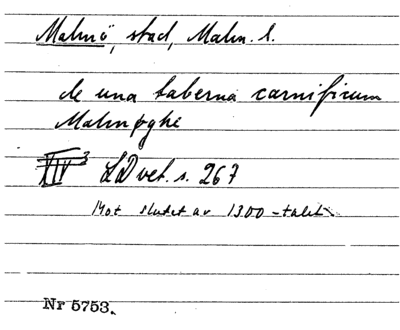 Malmö, stad, Malm. l.
de una taberna carnificum
Malmøghe
XIV 3 LDvet. s. 267
Mot slutet av 1300-talet
Nr 5753.